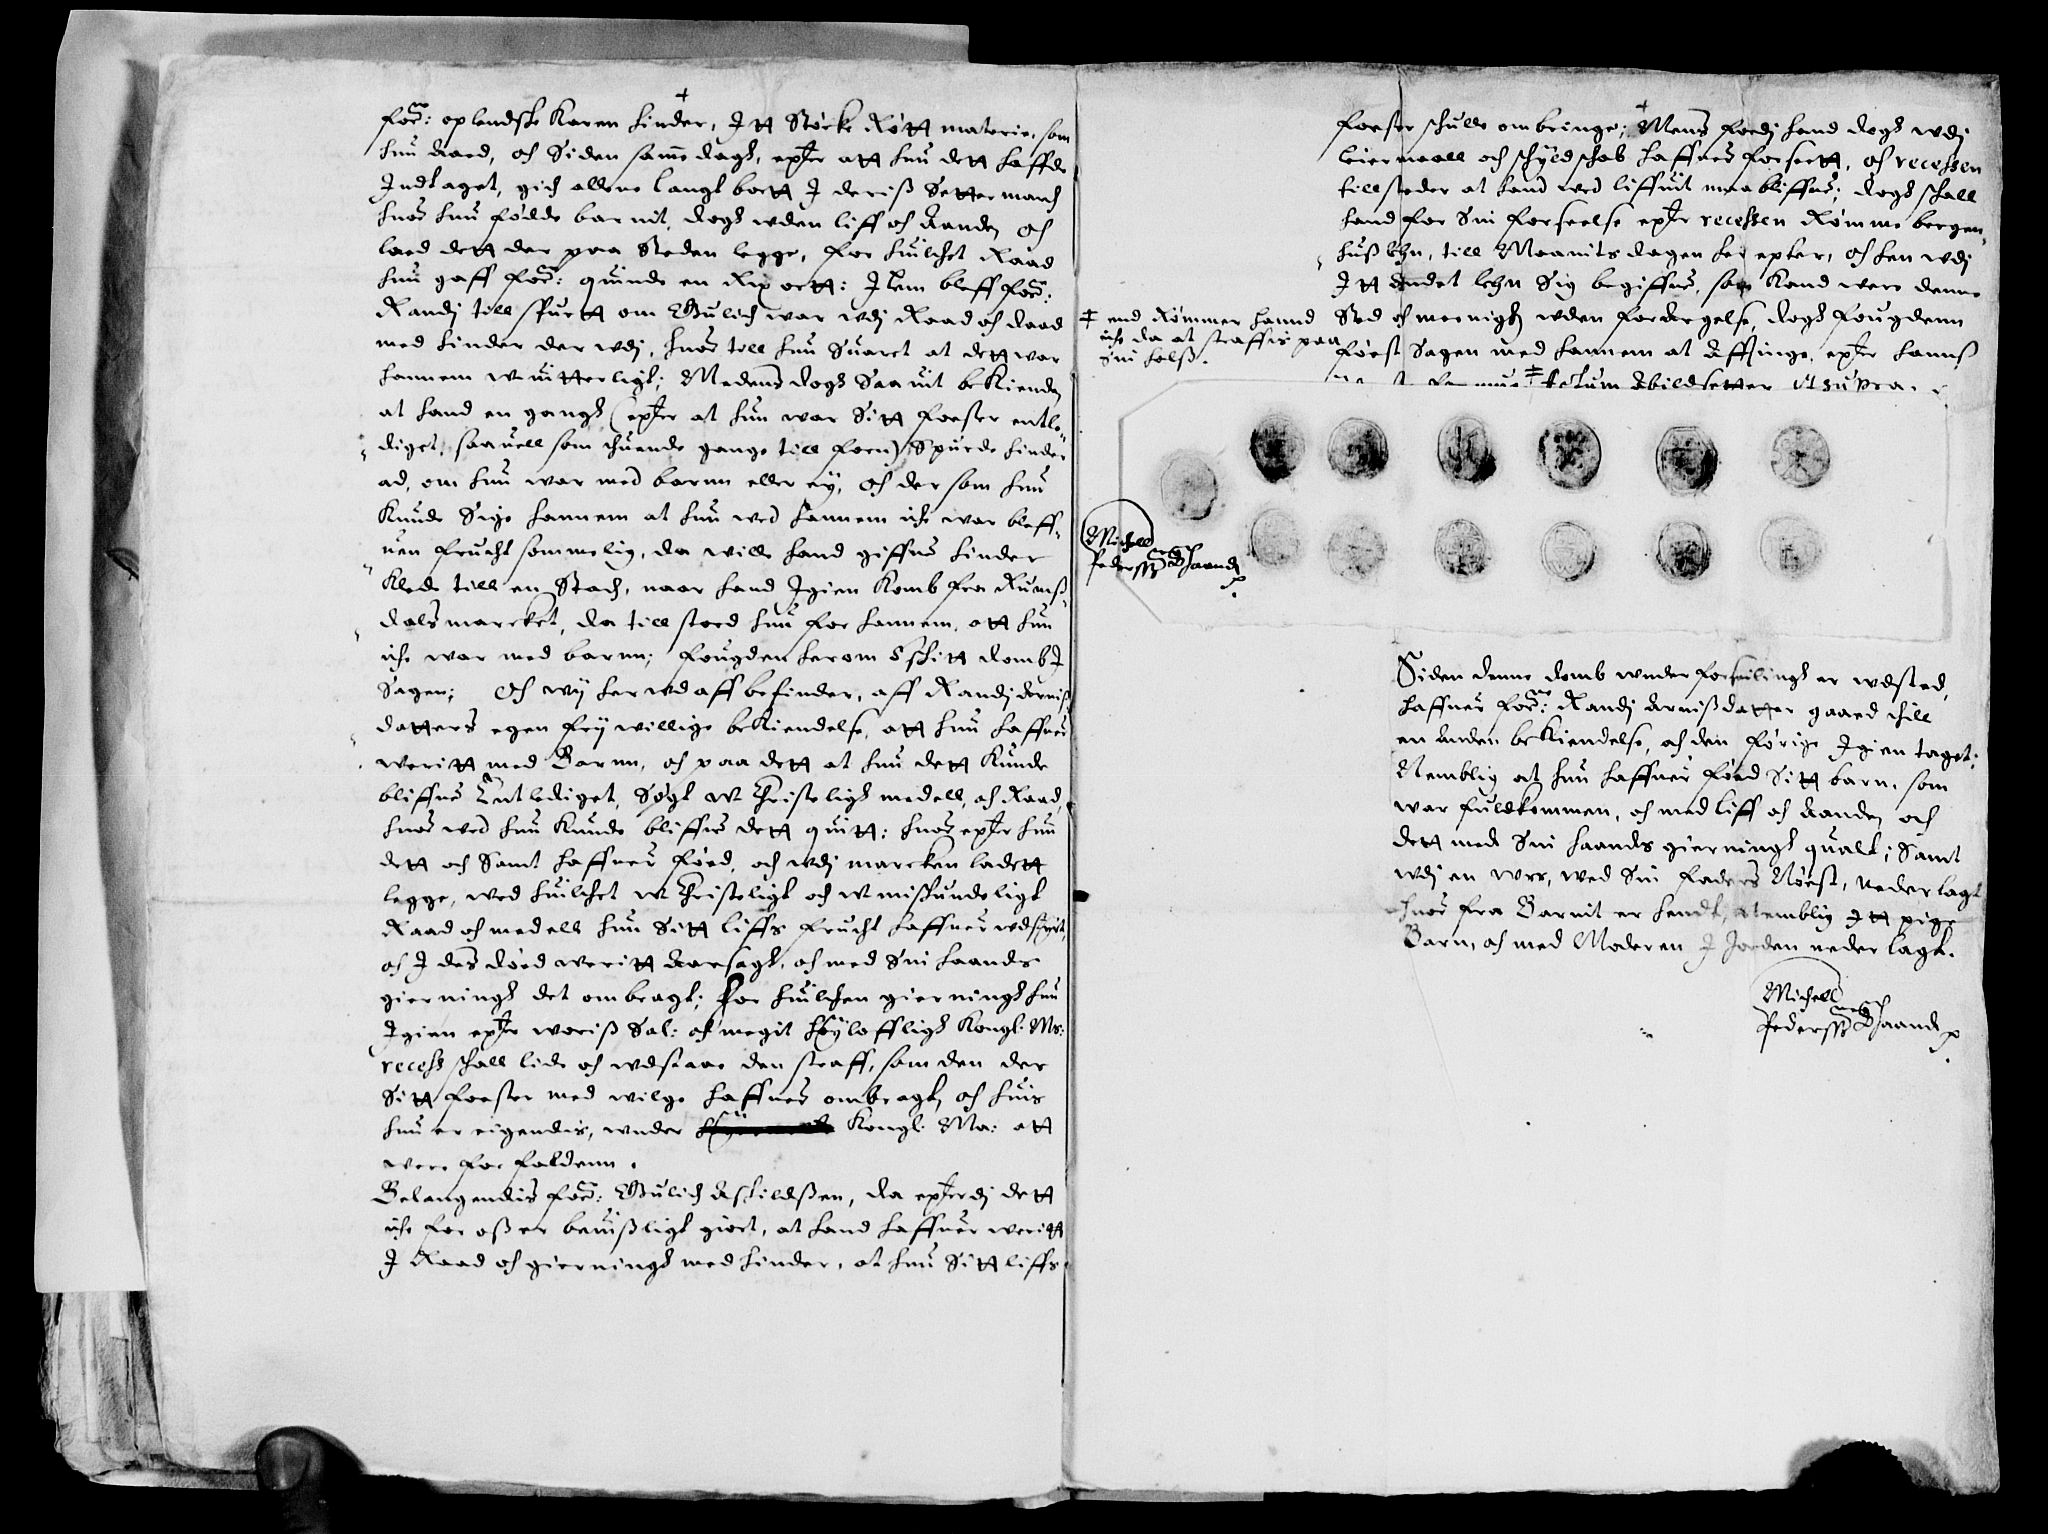 forᵉ: oplendske Karen hinder, Itt Støcke Røtt materie, som
hun Aad, och Siden samme dags, epter att hun dett haffde
Indtaget, gich allene langt bortt I deriß Setter march
huor hun fødde barnit, dogh uden liff och Aande, och
laed dett der paa Steden legge, for huilchet Raad
hun gaff forᵉ: quinde en Rix ortt: Item bleff forᵉ:
Randj till spurtt om Gulich war udj Raad och daad
med hinder der udj, huor till hun Suaret at dett war
hannem wuitterligt; Medens dogh Saa uit bekiende,
at hand en gangh (epter at hun war Sitt foster entle-
diget, saauell som thuende gange till forn) Spurde hinder
ad, om hun war med barnn eller ey, och der som hun
Kunde Sige hannem at hun wed hannem iche war bleff-
uen frucht sommelig, da wille hand giffue hinder
Klede till en Stach, naar hand Igien Komb fra Rumß-
dals marcket, da till stoed hun for hannem, att hun
iche war med barnn; fougden herom Eschitt domb I
Sagen; Och wij her udaff befinder, aff Randj Arniß
datters egen frywillige bekiendelse, att hun haffuer
weritt med Barnn, och paa dett at hun dett Kunde
bliffue Entlediget, Søgt u-Christeligh medell, och Raad,
huor wed hun Kunde bliffue dett quitt: huor epter hun
dett och Samt haffuer fød, och udj marcken ladett
legge, wed huilchet u-Christeligt och u-mißkundeligt
Raad och medell hun Sitt liffs frucht haffuer udshyrt,
och I des død weritt Aarsagh, och med Sin haands
gierningh det ombragt; for huilchen gierningh hun
Igien epter woriß Sal: och megit høyloffligh Kongl: Ms:
recess schall lide och udstaae den straff, som den der
Sitt foster med wilge haffuer ombragt, och huis
hun er eigendis, under Kongl: Ma: att
were forfaldenn.
Belangendis forᵉ: Gulich Eskildßen, da epterdj dett
iche for oß er beuißligt giort, at hand haffuer weritt
I Raad och gierningh med hinder, at hun Sitt liffs
foster schulle ombringe; Mens fordj hand dogh udj
leiermaall och schyldschab haffuer forseett, och recessen
tillsteder at hand wed liffuit maa bliffue; dogh schall
hand for Sin forseelse epter recessen Rømme bergen-
huß lehn, till Maanits dagen her epter, och hen udj
Itt Andet lehn Sig begiffue, som Kand were denne
Sted och meenigh uden fordergelse, dogh fougdenn
først Sagen med hannem at Affsinge, epter hanns
‡ Actum Abildsetter ut supra.
‡ end Rømmer hannd
iche da at straffis paa
Sin halß.
Michell
Pederss: megh haand
Siden denne domb under forseilingh er udsted,
haffuer forᵉ: Randj Arnißdatter gaaed till
en Anden bekiendelse, och den førige Igien taget;
Nemblig at hun haffuer fød Sitt barn, som
war fuldkommen, och med liff och Aande, och
dett med Sin haands gierningh qualt; Samt
udj en urs, wed Sin faders Nøest, neder lagt
huor fra Barnit er hendt, Nemblig Itt pige
Barn, och med Moderen I Jorden neder lagt.
Michell
Pederss: megh haand